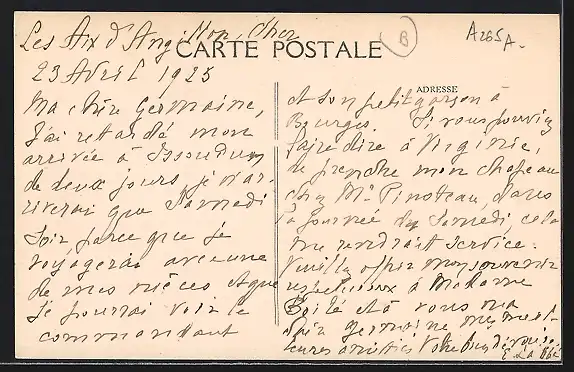 Les Aix d'Ang Mon Cher
CARTE POSTALE
B
A265A.
23 Avril 1925
ADRESSE
Ma chère Germaine,
J'ai retardé mon
arrivée à Issoudun
de deux jours je n'ar-
riverai que Samedi
soir parce que je
voyagerai avec une
de mes nièces et que
je pourrai voir le
commandant
et son petit garçon à
Bourges. Si vous pouviez
faire dire à Virginie,
de prendre mon chapeau
chez Me Pinoteau, dans
la journée du Samedi, cela
me rendrait service.
Veuillez offrir mon souvenir
respectueux à Madame
et à vous ma
chère Germaine, mes meil-
leures amitiés Votre bien dévouée,
E La